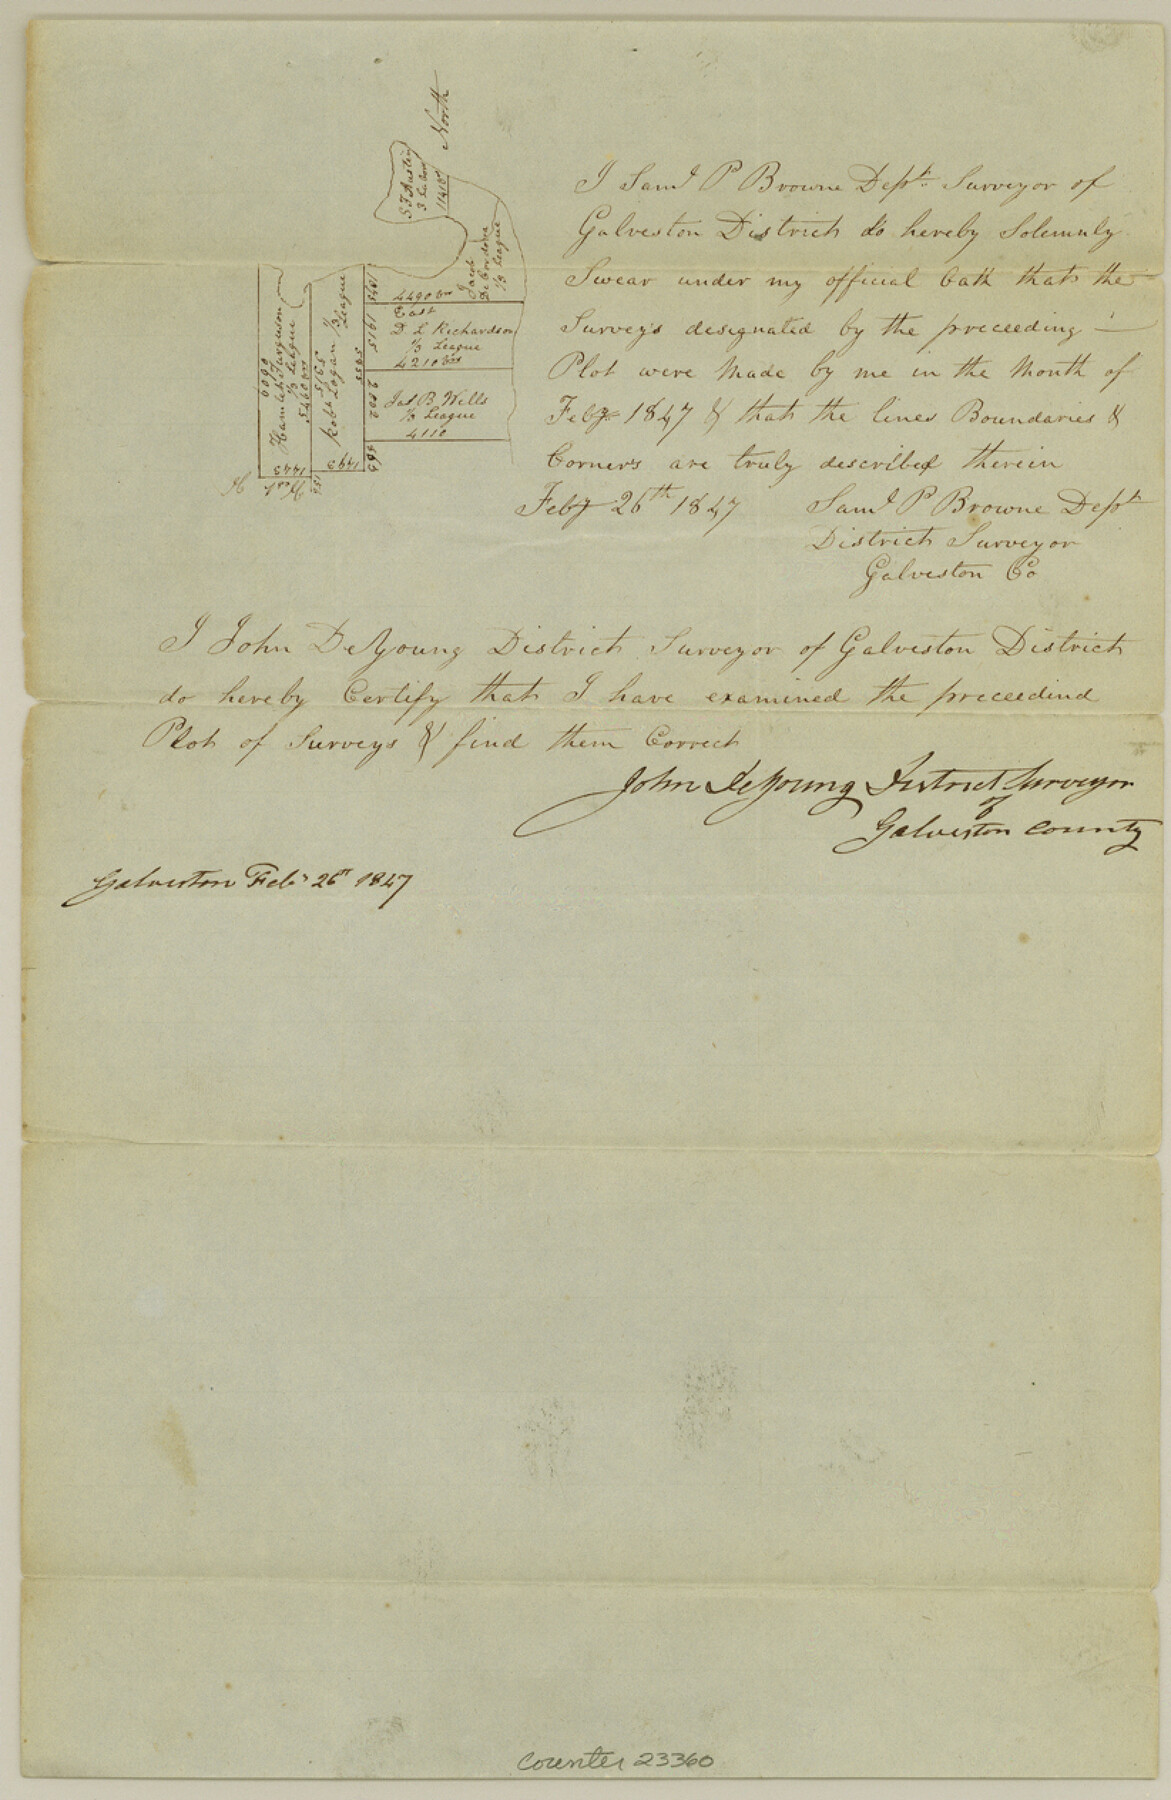 North
S. F. Austin
3 Labor
11410
Jacob
De Cordova
1/3 League
4490 vrs
East
D L Richardson
1/3 League
4210 vrs
Jas. B. Wells
1/3 League
4110
1915
2502
563
5855
Robt Logan 1/3
League
5165
1493
Hamlet Ferguson
1/3 League
5460 vrs
6090
1443
West
I Saml P Browne Dept. Surveyor of
Galveston District do hereby Solemnly
Swear under my official Oath that the
Surveys designated by the preceeding
Plot were Made by me in the Month of
Feby 1847 & that the lines Boundaries &
Corners are truly described therein
Feby 26th 1847 Saml P Browne Dept
District Surveyor
Galveston Co
I John DeYoung District Surveyor of Galveston District
do hereby Certify that I have examined the preceedind
Plot of Surveys & find them Correct
John DeYoung District Surveyor
of
Galveston County
Galveston Feby 26th 1847
Counter 23360